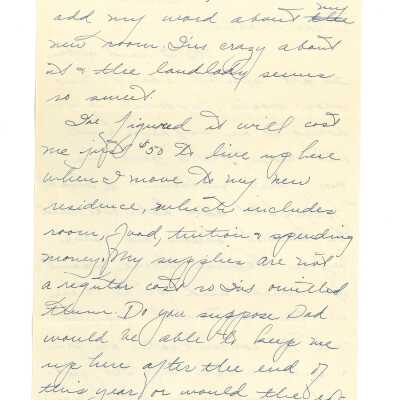 add my word about my
new room. I'm crazy about
it & the landlady seems
so sweet.
I've figured it will cost
me just $50 to live up here
when I move to my new
residence, which includes
room, food, tuition & spending
money. My supplies are not
a regular cost so I've omitted
them. Do you suppose Dad
would be able to keep me
up here after the end of
this year, or would the